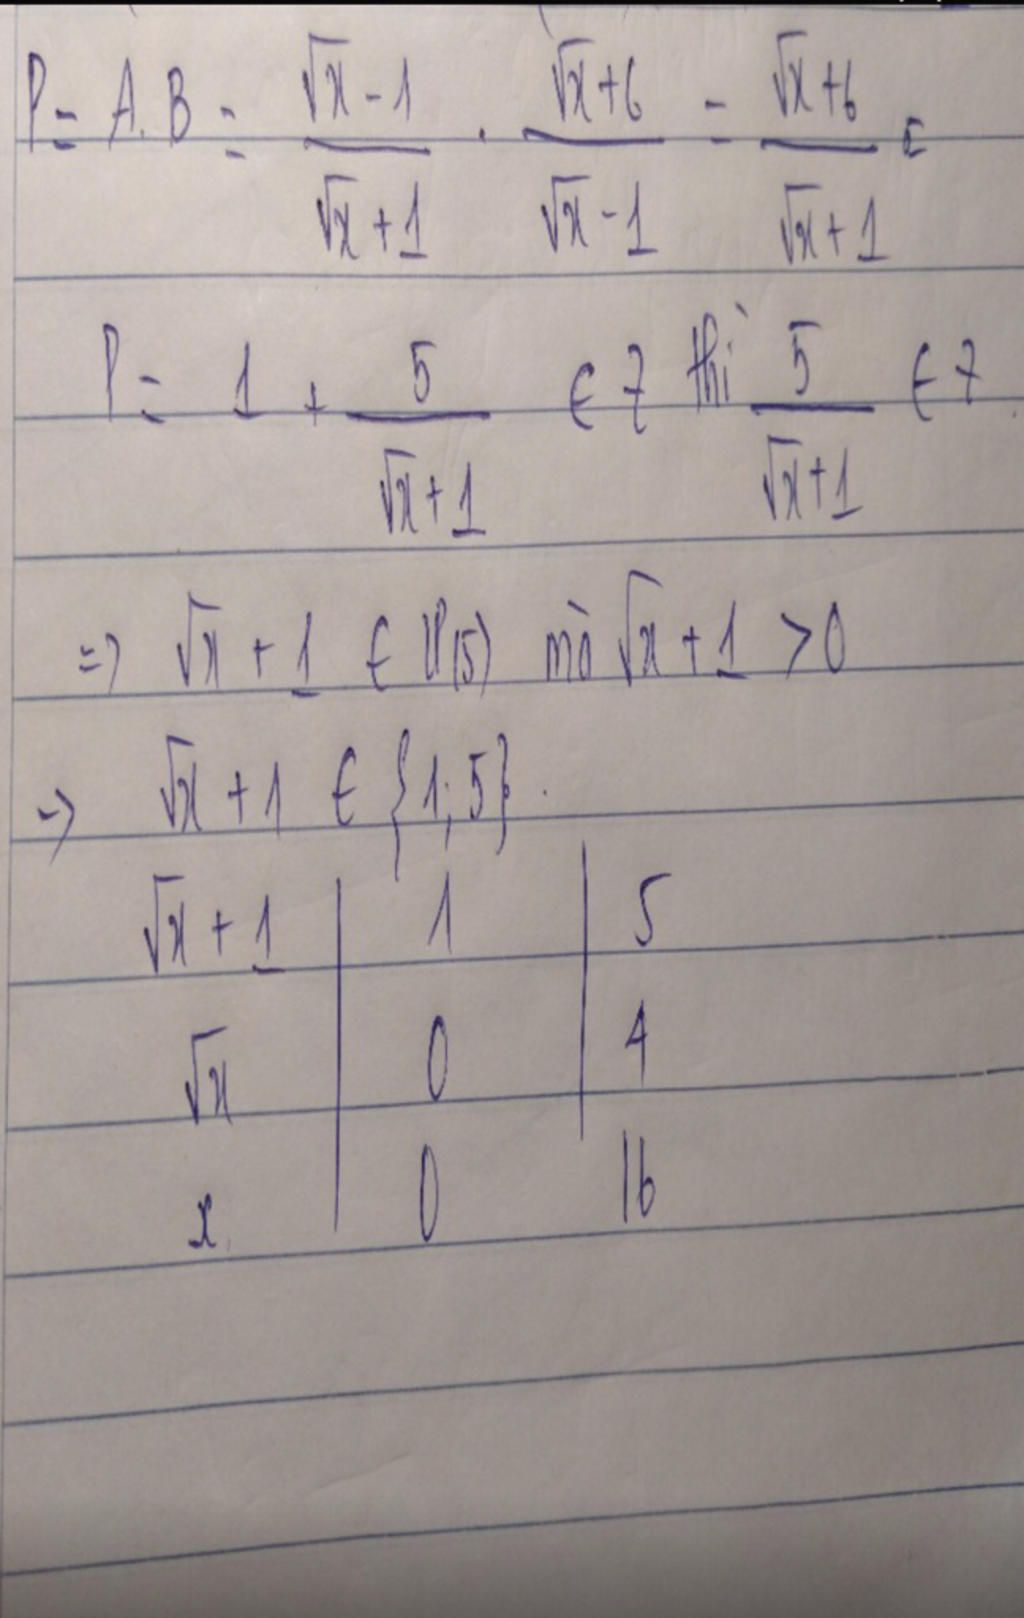 P = A.B = (√x - 1)/(√x + 1) · (√x + 6)/(√x - 1) = (√x + 6)/(√x + 1) =
P = 1 + 5/(√x + 1) ∈ Z thì 5/(√x + 1) ∈ Z
=> √x + 1 ∈ Ư(5) mà √x + 1 > 0
-> √x + 1 ∈ {1; 5}.
√x + 1 | 1 | 5
√x | 0 | 4
x | 0 16